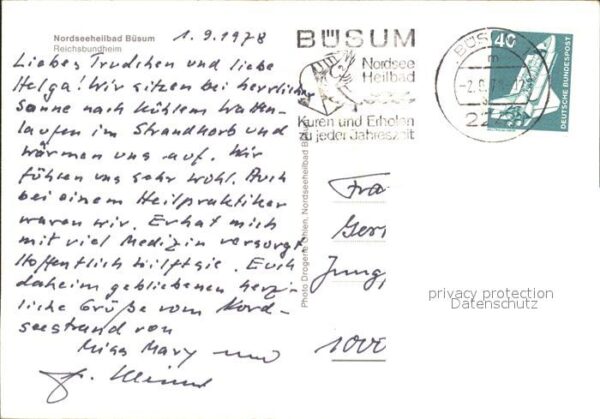 Nordseeheilbad Büsum
Reichsbundheim
1.9.1978
Liebes Trudchen und liebe
Helga! Wir sitzen bei herrlicher
Sonne nach kühlem Watten-
laufen im Strandkorb und
wärmen uns auf. Wir
fühlen uns sehr wohl. Auch
bei einem Heilpraktiker
waren wir. Er hat mich
mit viel Medizin versorgt
Hoffentlich hilft sie. Euch
daheim gebliebenen herz-
liche Grüße vom Nord-
seestrand von
Miss Mary und
BÜSUM
Nordsee
Heilbad
Kuren und Erholen
zu jeder Jahreszeit
BÜSUM
40
DEUTSCHE BUNDESPOST
Photo Drogerie Nordseeheilbad
Fra
Ger
Jung
1000
privacy protection
Datenschutz